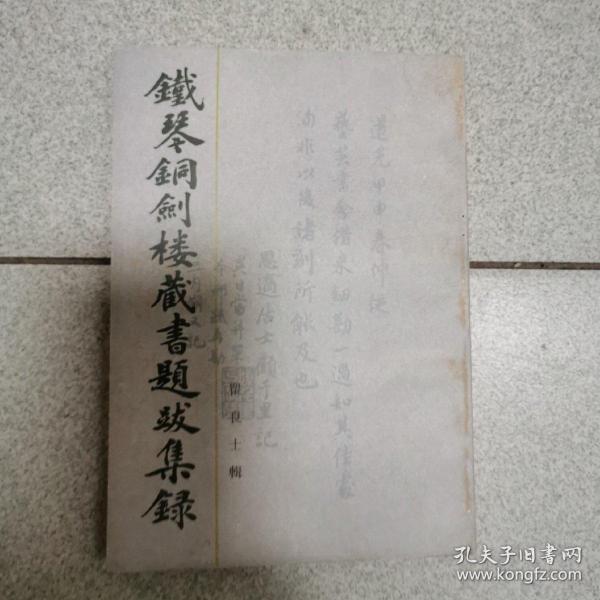 鐵琴銅劍楼蔵書題跋集録
瞿良士輯
道光甲申春仲從
藝芸書舍借来細勘一過知其佳處
尚非以後諸刻所能及也
思適居士顧千里記
孔夫子旧书网
www.kongfz.com